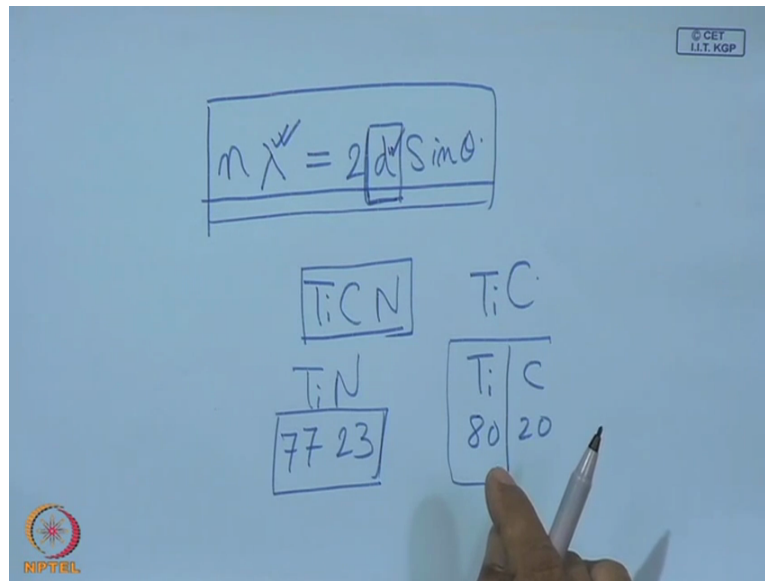 © CET
I.I.T. KGP
nλ = 2d Sinθ
TiCN TiC
TiN Ti C
77 23 80 20
NPTEL